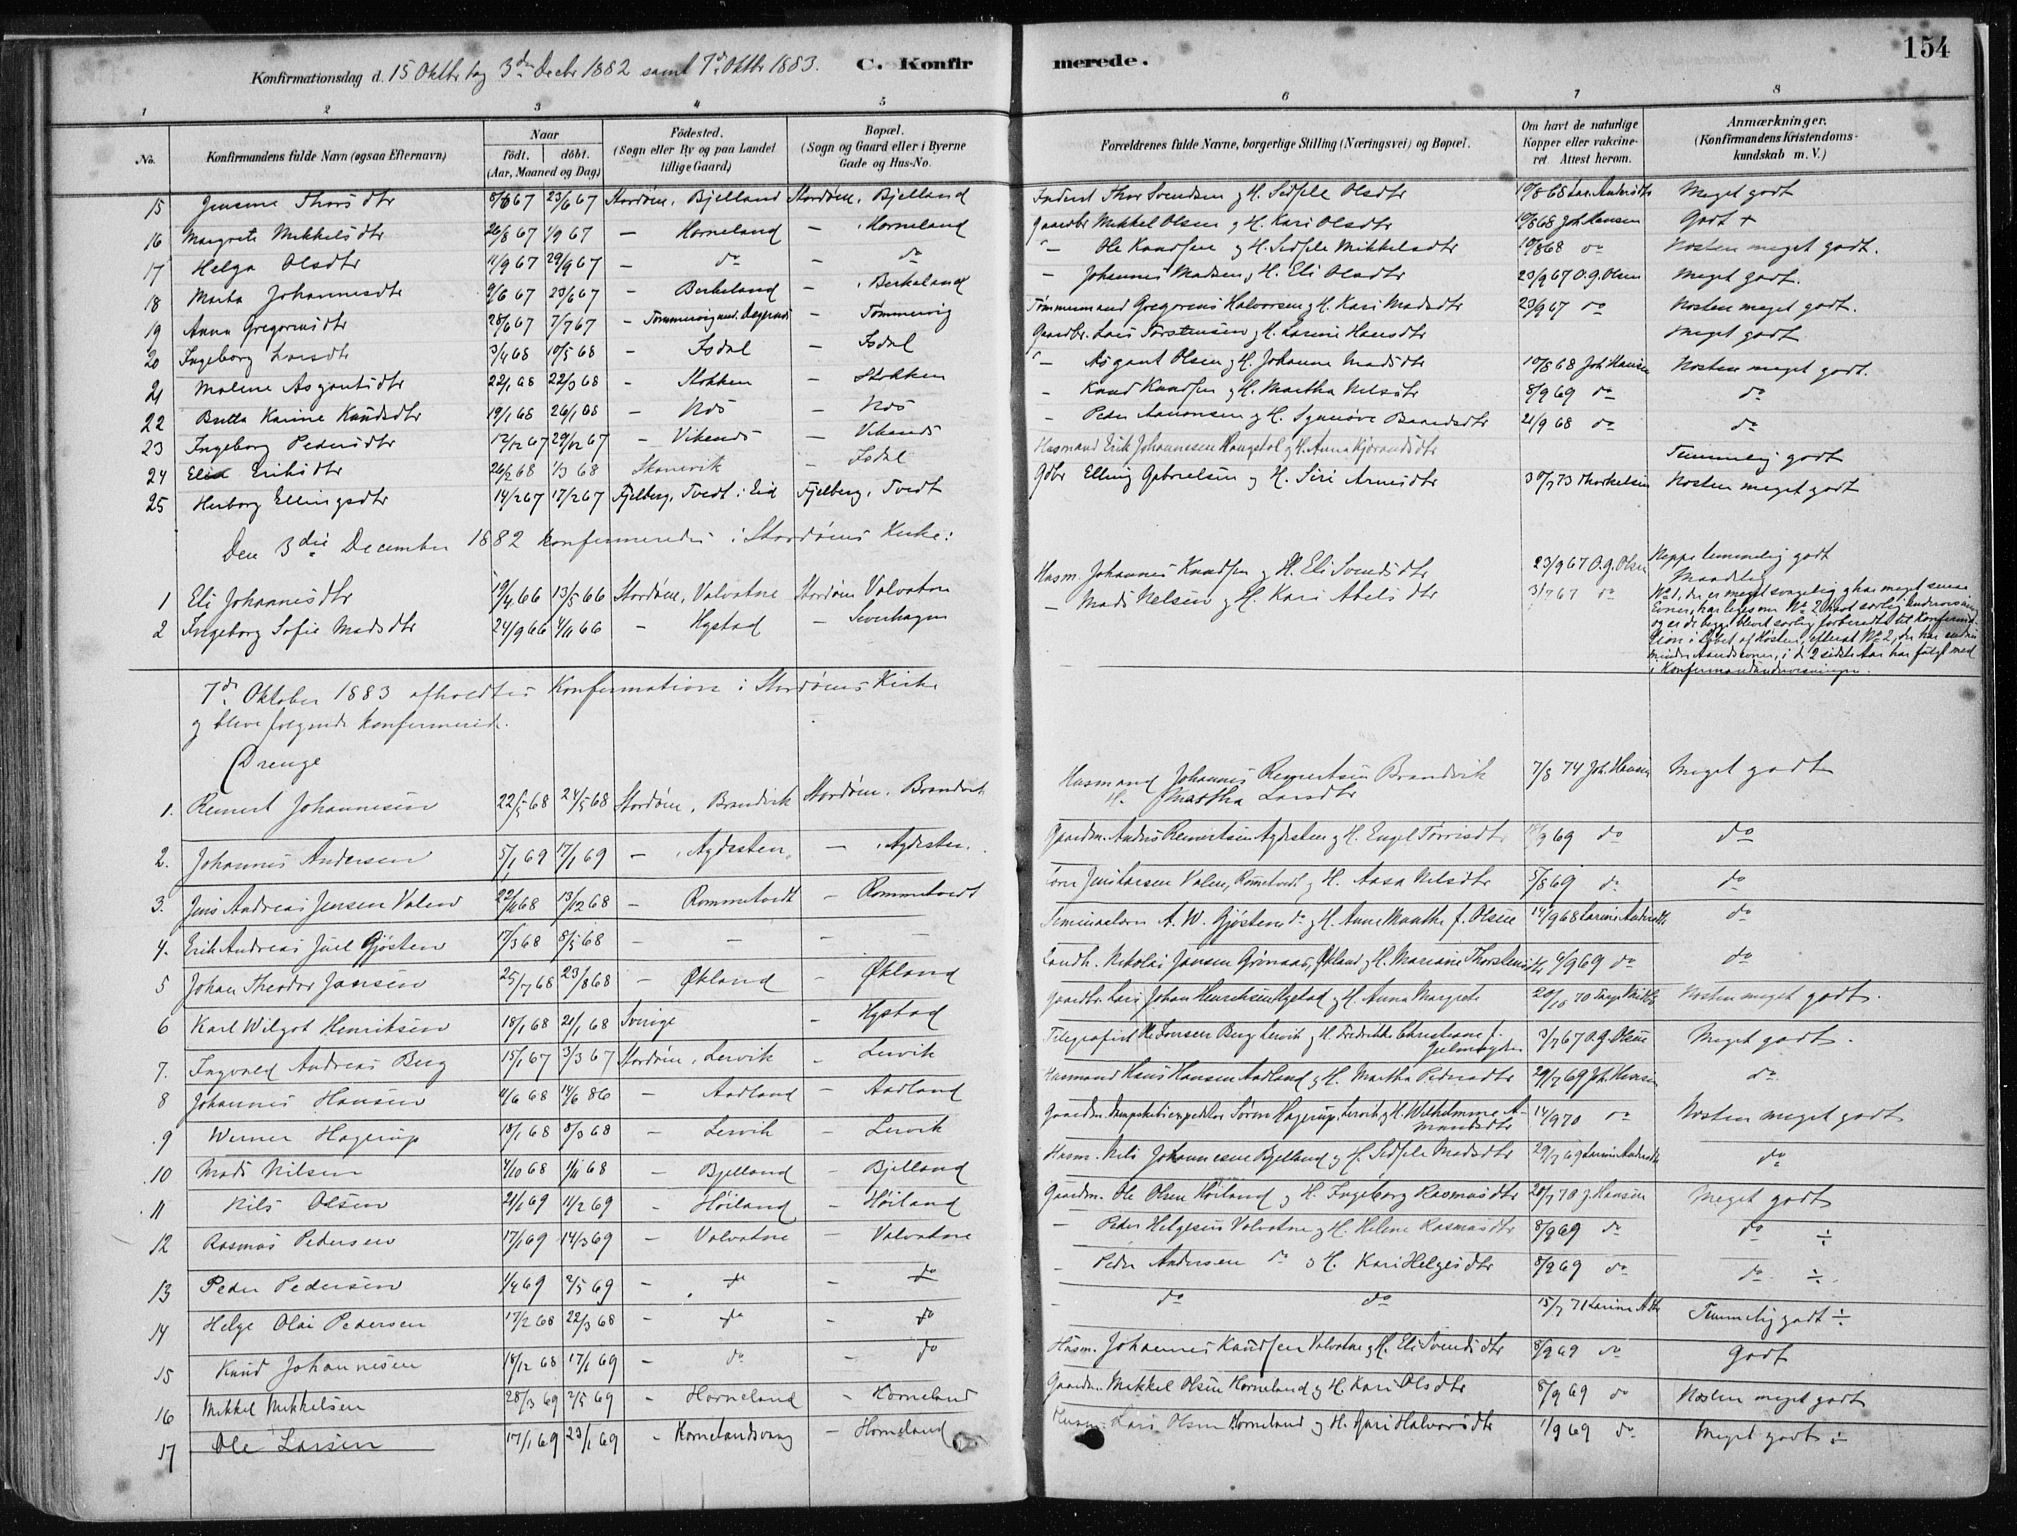 154
Konfirmationsdag d. 15 Oktbr og 3die Decbr 1882 samt 7de Oktbr 1883. C. Konfirmerede.
1 2 3 4 5 6 7 8
No. Konfirmandens fulde Navn (ogsaa Efternavn) Naar født. døbt. (Aar, Maaned og Dag) Fødested. (Sogn eller By og paa Landet tillige Gaard) Bopæl. (Sogn og Gaard eller i Byerne Gade og Hus-No. Forældrenes fulde Navne, borgerlige Stilling (Næringsvei) og Bopæl. Om havt de naturlige Kopper eller vaccineret. Attest herom. Anmærkninger. (Konfirmandens Kristendomskundskab m. V.)
15 Thorsdtr 67 23/6 67 Stordøen, Bjelland Stordøen, Bjelland Thor Svendsen og H. Sidsele Olsdtr 19/8 68 Meget godt
16 Margrete Mikkelsdtr 26/8 67 1/9 67 – Horneland – Horneland Gaardbr. Mikkel Olsen og H. Kari Olsdtr 19/8 68 Joh. Hansen Godt +
17 Helga Olsdtr 11/9 67 29/9 67 – do – do – Ole Knudsen og H. Sidsele Mikkelsdtr 19/8 68 do Næsten meget godt.
18 Marta Johannesdtr 9/6 67 23/6 67 – Berkeland – Berkeland – Johannes Madsen og H. Eli Olsdtr 23/9 67 O.G. Olsen Meget godt.
19 Anna Gregoriusdtr 28/6 67 7/7 67 – Tømmervig – Tømmervig Tømmermand Gregorius Halvorsen og H. Kari Madsdtr 23/9 67 do Næsten meget godt.
20 Ingeborg Larsdtr 3/4 68 10/5 68 – Isdal – Isdal Gaardbr. Lars Torstensen og H. Larine Hansdtr Meget godt
21 Malene Asgautsdtr 22/1 68 22/3 68 – Stokken – Stokken – Asgaut Olsen og H. Johanne Madsdtr 19/8 68 Joh. Hansen Næsten meget godt.
22 Britta Karine Knudsdtr 19/1 68 26/1 68 – Næs – Næs – Knud Knudsen og H. Martha Nilsdtr 8/9 69 do do
23 Ingeborg Pedersdtr 12/12 67 29/12 67 – Vikenes – Vikanes – Peder Aanonsen og H. Synnøve Baardsdtr 21/9 68 do do
24 Eriksdtr 26/2 68 1/3 68 Skonevik – Isdal Husmand Erik Johannesen Haugstol og H. Anna Kjørandsdtr Temmelig godt
25 Herborg Ellingsdtr 14/2 67 17/2 67 Fjelberg, Tvedt i Eid Fjelberg, Tvedt Gdbr Elling Gabrielsen og H. Siri Arnesdtr 30/7 73 Thorkelsen Næsten meget godt
Den 3die December 1882 konfirmeredes i Stordøens Kirke:
1 Eli Johannesdtr 19/4 66 13/5 66 Stordøen, Valvatne Stordøen Valvatne Husm. Johannes Knudsen og H. Eli Svendsdtr 23/9 67 O.G. Olsen Neppe temmelig godt
2 Ingeborg Sofie Madsdtr 24/9 66 4/11 66 – Hystad – – Mads Nelsen og H. Kari Abelsdtr 31/7 67 do Maadelig
No 1, der er meget svagelig og har meget smaa
Evner, har ligesom No 2 havt særlig Undervisning
og er de begge blevet særlig forberedte til Konfirma-
tion i Løbet af Høsten, efterat No 2, der har endnu
mindre Aandsevner, i de 2 sidste Aar har fulgt med
i Konfirmandundervisningen.
7de Oktober 1883 afholdtes Konfirmation i Stordøens Kirke
og bleve følgende konfirmerede.
Drenge
1. Reinert Johannesen 22/5 68 24/5 68 Stordøen, Brandvik Stordøen, Brandvik Husmand Johannes Reinertsen Brandvik H. Martha Larsdtr 7/8 74 Joh. Hansen Meget godt
2. Johannes Andersen 5/1 69 17/1 69 – Agdesten – Agdesten Gaardm. Anders Reinertsen Agdesten og H. Engel Tørrisdtr 9 69 do do
3. Jens Andreas Jensen Valen 22/11 68 13/12 68 – Rommetvedt – Rommetvedt Jens Larsen Valen, Rommetvedt og H. Aasa Nilsdtr 5/8 69 do do
4. Erik Andreas Juel Gjøsten 17/3 68 8/5 68 – – – – A. W. Gjøsten do og H. Anne Marthe f. Olsen 14/9 68 Larine Andersdtr do
5 Johan Theodor Jansen 25/7 68 23/8 68 – Økland – Økland Landh. Nikolai Jansen Grønaas, Økland og H. Mariane Thorstensdtr 4/9 69 do do
6 Karl Wilgot Henriksen 18/1 68 21/1 68 Sverige – Hystad Gaardbr Lars Johan Henriksen Hystad og H. Anna Margrete 20/10 70 Næsten meget godt.
7. Ingvald Andreas Berg 15/1 67 3/3 67 Stordøen, Lervik – Lervik Telegrafist Berg Lervik og H. Fredrikke Christiane f. 3/7 67 O.G. Olsen Meget godt.
8 Johannes Hansen 11/6 68 14/6 86 – Aadland – Aadland Husmand Hans Hansen Aadland og H. Martha Pedersdtr 29/7 69 Joh. Hansen do
9 Werner Hagerup 18/1 68 8/3 68 – Lervik – Lervik Gaardm. Dampskibsexpeditør Søren Hagerup, Lervik og H. Wilhelmine A- mundsdtr 14/9 70 do Næsten meget godt
10 Mads Nilsen 4/10 68 1/11 68 – Bjelland – Bjelland Husm. Nils Johannesen Bjelland og H. Sidsele Madsdtr 29/7 69 Larine Andersdtr do
11 Nils Olsen 21/1 69 14/2 69 – Høiland – Høiland Gaardm. Ole Olsen Høiland og H. Ingeborg Rasmusdtr 20/7 70 J. Hansen Meget godt
12 Rasmus Pedersen 17/1 69 14/3 69 – Valvatne – Valvatne – Peder Helgesen Valvatne og H. Helene Rasmusdtr 8/9 69 do do ÷
13 Peder Pedersen 1/4 69 2/5 69 – do – do – Peder Andersen do og H. Kari Helgesdtr 8/9 69 do do ÷
14 Helge Olai Pedersen 17/2 68 22/3 68 – do – do – do do 15/7 71 Larine Adtr Temmelig godt ÷
15 Knud Johannesen 18/12 68 17/1 69 – do – do Husm. Johannes Knudsen Valvatne og H. Eli Svendsdtr 8/9 69 do Godt
16 Mikkel Mikkelsen 28/3 69 2/5 69 – Horneland – Horneland Gaardm. Mikkel Olsen Horneland og H. Kari Olsdtr 8/9 69 do Næsten meget godt
17 Ole Larsen 17/1 69 23/1 69 – Hornelandsvaag – Horneland Husm. Lars Olsen Horneland og H. Guri Halvorsdtr 1/9 69 do Meget godt ÷